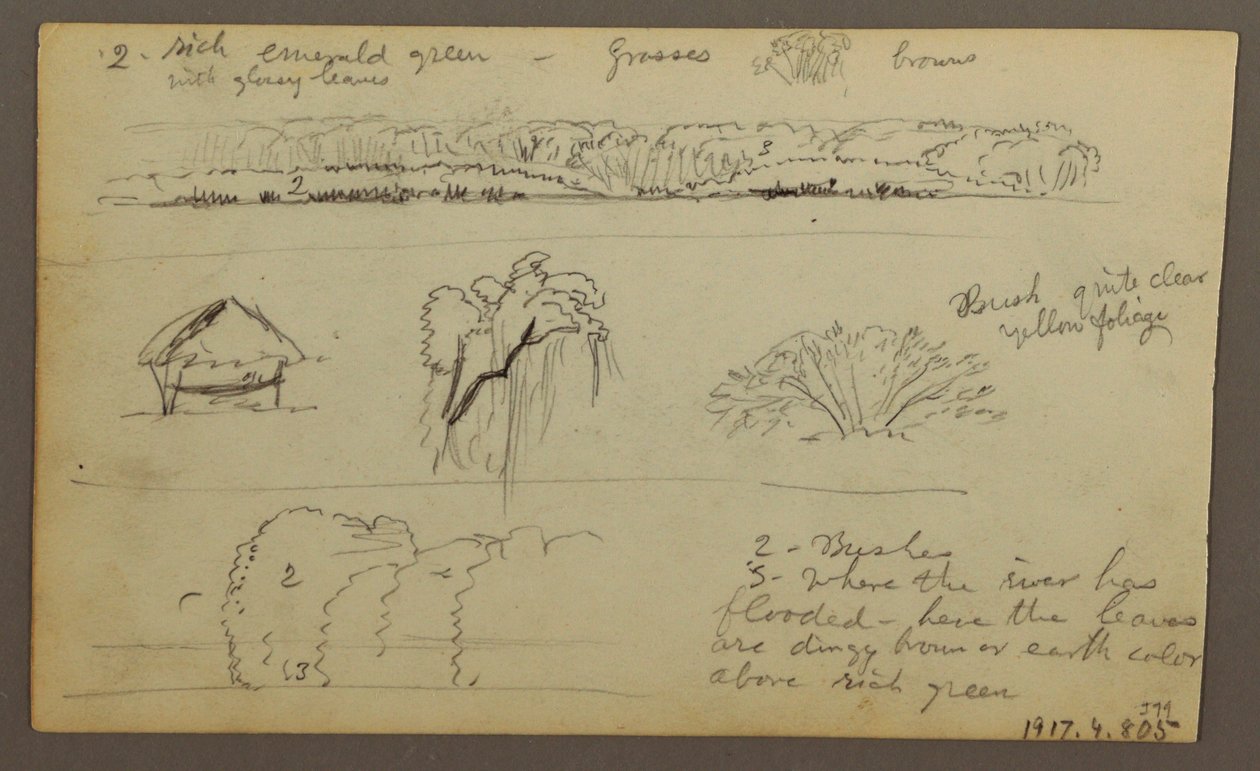 2. rich emerald green - Grasses browns
with glossy leaves
3
2
Bush quite clear
yellow foliage
2
3
2 - Bushes
3 - Where the river has
flooded - here the leaves
are dingy brown or earth color
above rich green
1917.4.805